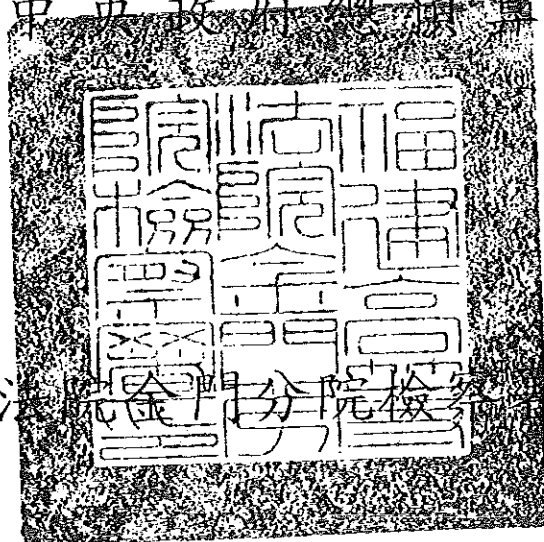 中央政府總預算
福建高等
法院金門分
院檢察署印
法院金門分院檢察